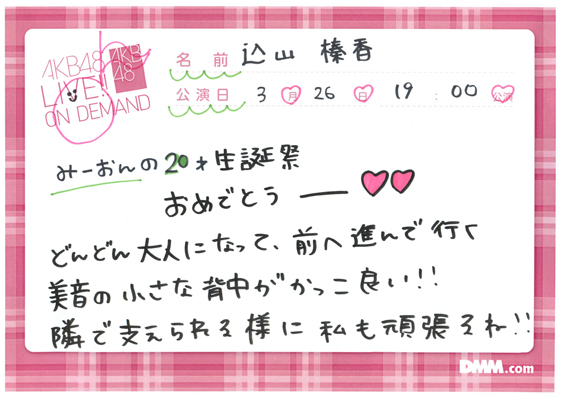 AKB48
LIVE!!
ON DEMAND
AKB
48
名前 込山 榛香
公演日 3月 26日 19:00 公演
みーおんの20才生誕祭
おめでとう ——
どんどん大人になって、前へ進んで行く
美音の小さな背中がかっこ良い!!
隣で支えられる様に私も頑張るね!!
DMM.com